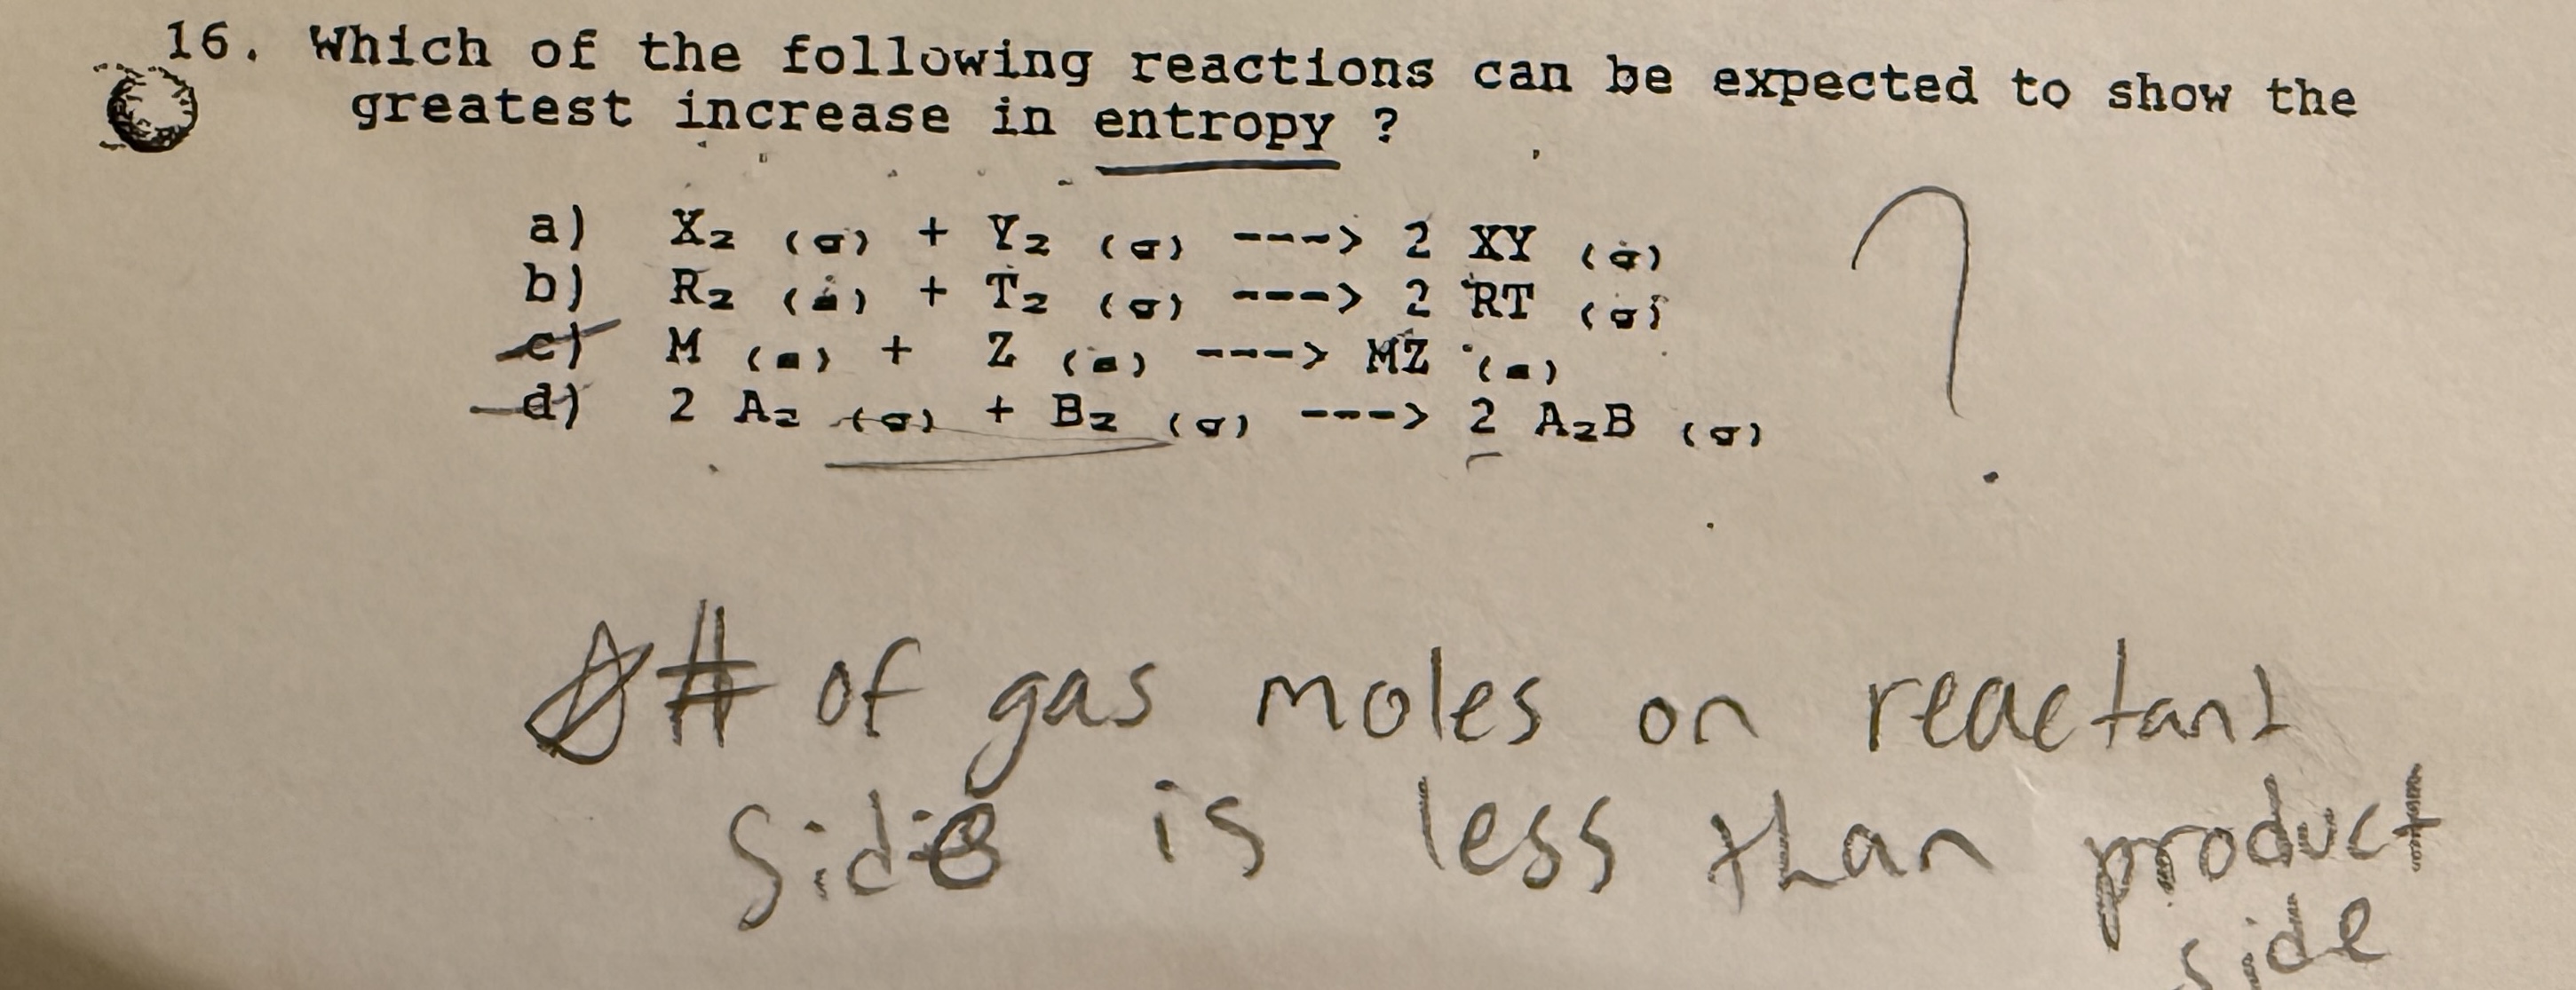 16. Which of the following reactions can be expected to show the
greatest increase in entropy ?
a) X₂ (g) + Y₂ (g) ---> 2 XY (g)
b) R₂ (s) + T₂ (g) ---> 2 RT (g)
c) M (s) + Z (s) ---> MZ (s)
d) 2 A₂ (g) + B₂ (g) ---> 2 A₂B (g)
?
# of gas moles on reactant
side is less than product
side